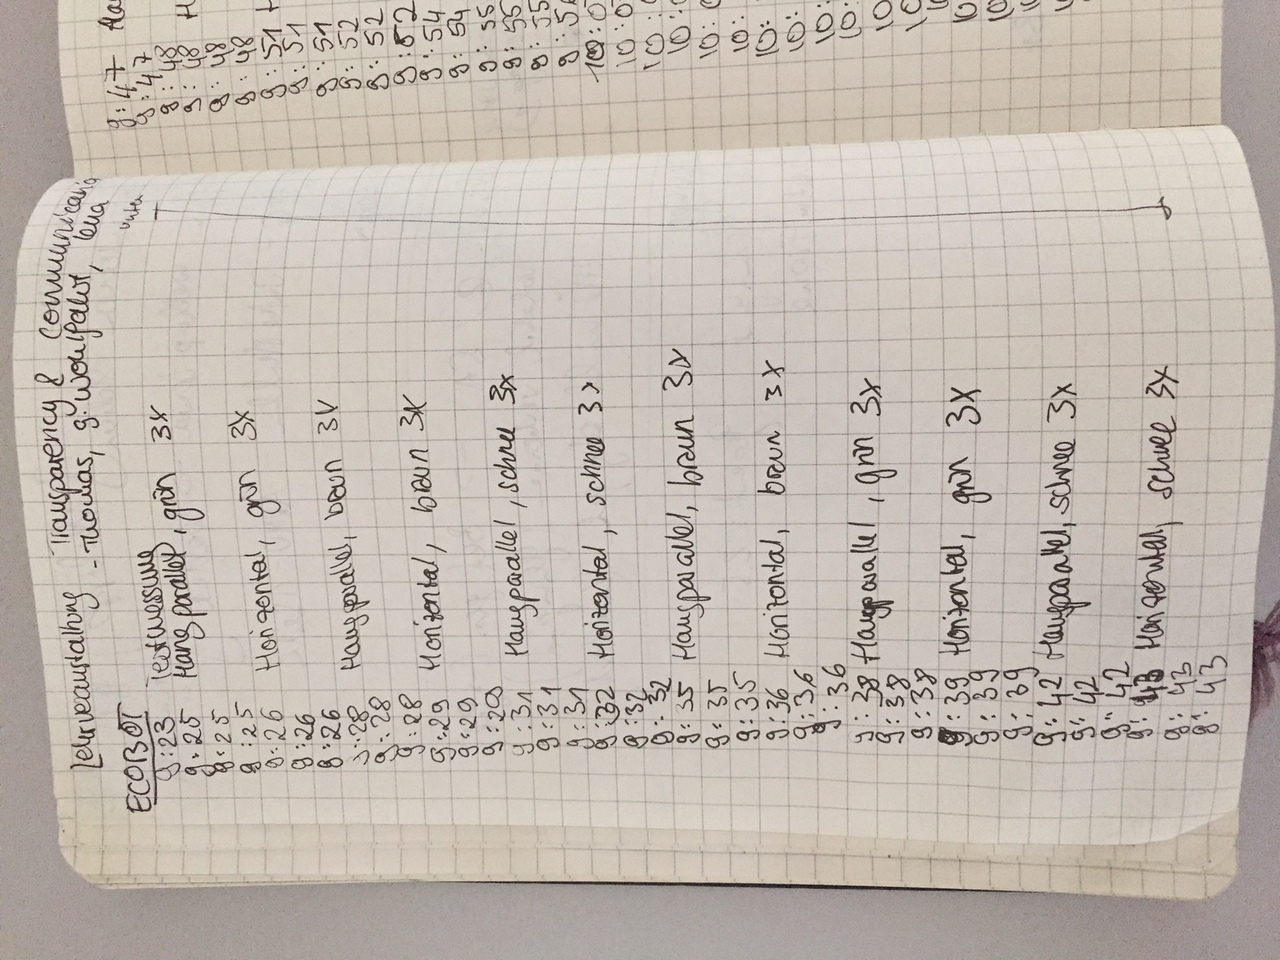 Lehrveanstaltung - Transparency & Communicatio
- Thomas, g. Wohlfahrt, Lena
ECOBOT
9:23 Testmessung 3x
9:25 Hangparallel, grün
9:25
9:25
9:26 Horizontal, grün 3x
9:26
9:26
9:28 Hangparallel, braun 3x
9:28
9:28
9:29 Horizontal, braun 3x
9:29
9:29
9:31 Hangparallel, schnee 3x
9:31
9:31
9:32 Horizontal, schnee 3x
9:32
9:32
9:35 Hangparallel, braun 3x
9:35
9:35
9:36 Horizontal, braun 3x
9:36
9:36
9:38 Hangparallel, grün 3x
9:38
9:38
9:39 Horizontal, grün 3x
9:39
9:39
9:42 Hangparallel, schnee 3x
9:42
9:42
9:43 Horizontal, schnee 3x
9:43
9:43
9:47
9:47
9:48
9:48
9:48
9:48
9:51
9:51
9:51
9:52
9:52
9:52
9:54
9:54
9:55
9:55
9:55